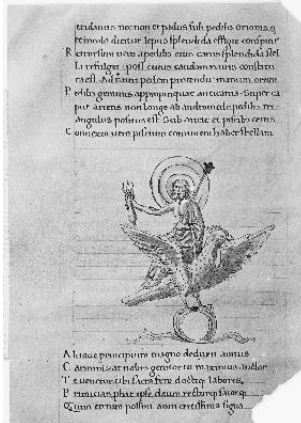 eridanus necnon et padus sub pedibus
dicitur lepus splendida effigie
R etrorsum vero apedibus eius canis splendida stel
la refulget. post cuius caudam navis constitu
ta est. Ad tauri pedem protendit manum orion
P edibus geminis appropinquat. Super ca
put arietis non longe ab andromede pedibus tri
angulus positus est. Sub ariete et piscibus cetus.
C onnexio vero piscium communem habet stellam
A b iove principium magno deduxit aratus
C arminis at nobis genitor tu maximus auctor
T e veneror tibi sacra fero doctiq; labores
P rimicias ipse deum rectorq; satorq;
etenim anni certissima signa